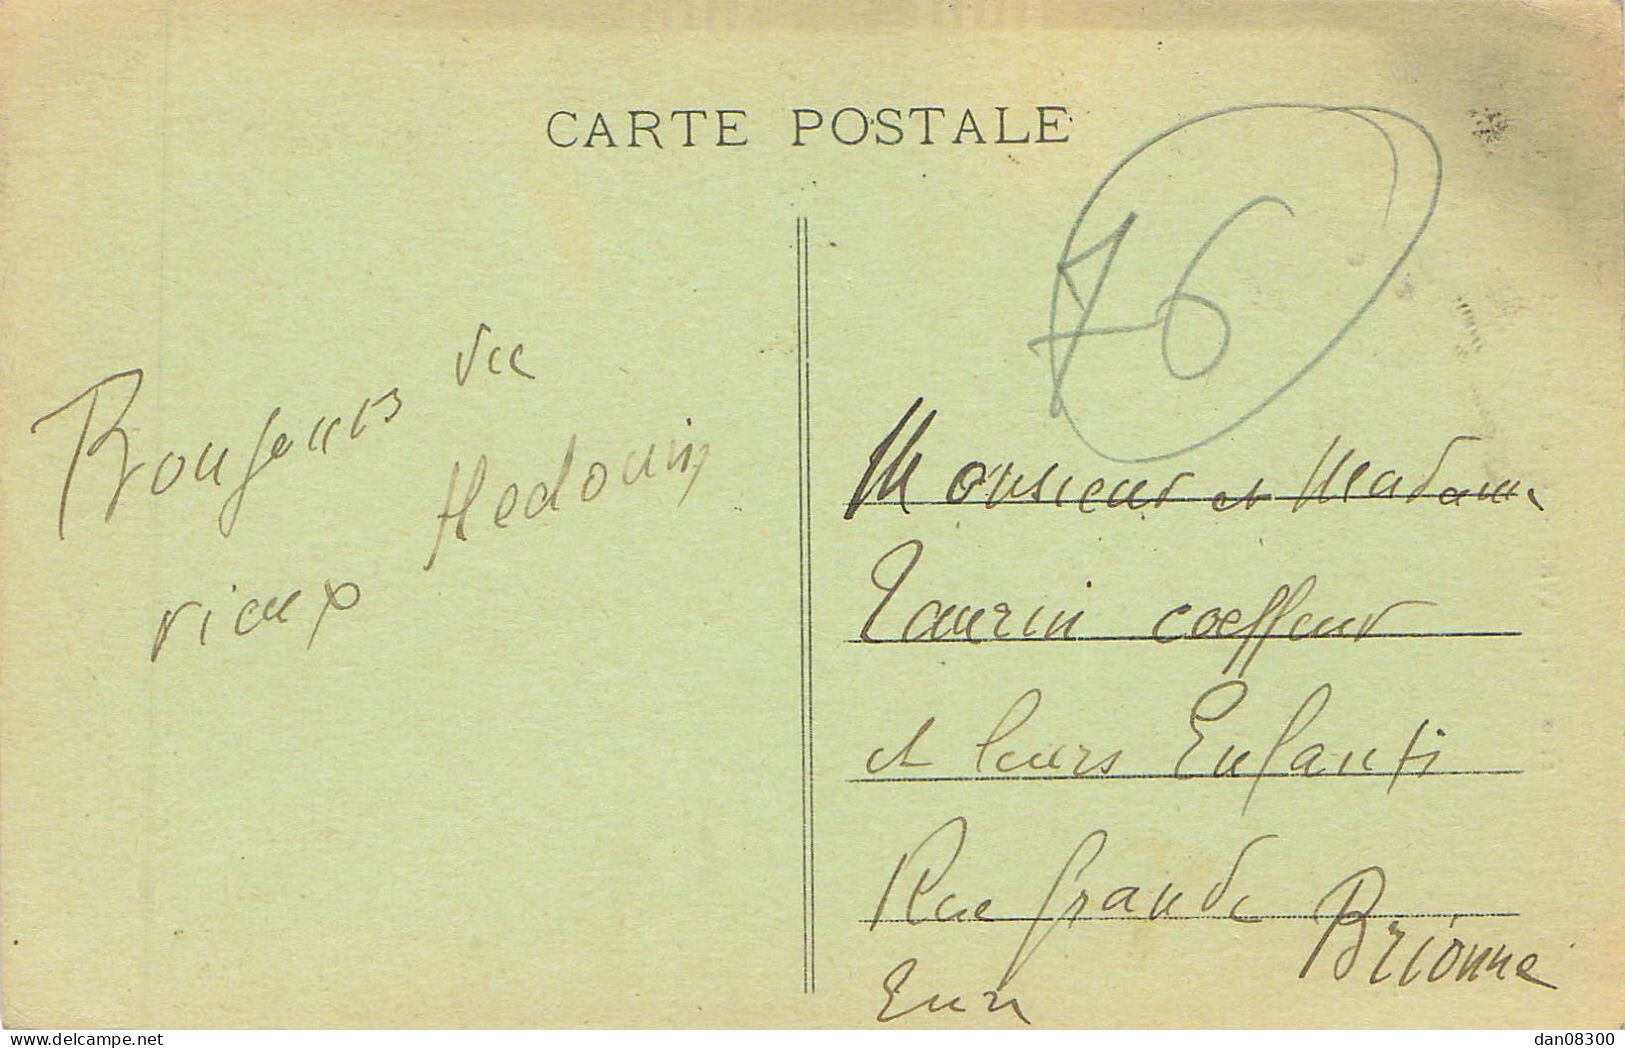 CARTE POSTALE
76
Bonjours de
Hedouin
vieux
Monsieur et Madame
Taurin coeffeur
et leurs Enfants
Rue Grande
Brionne
Eure
delcampe.net
dan08300